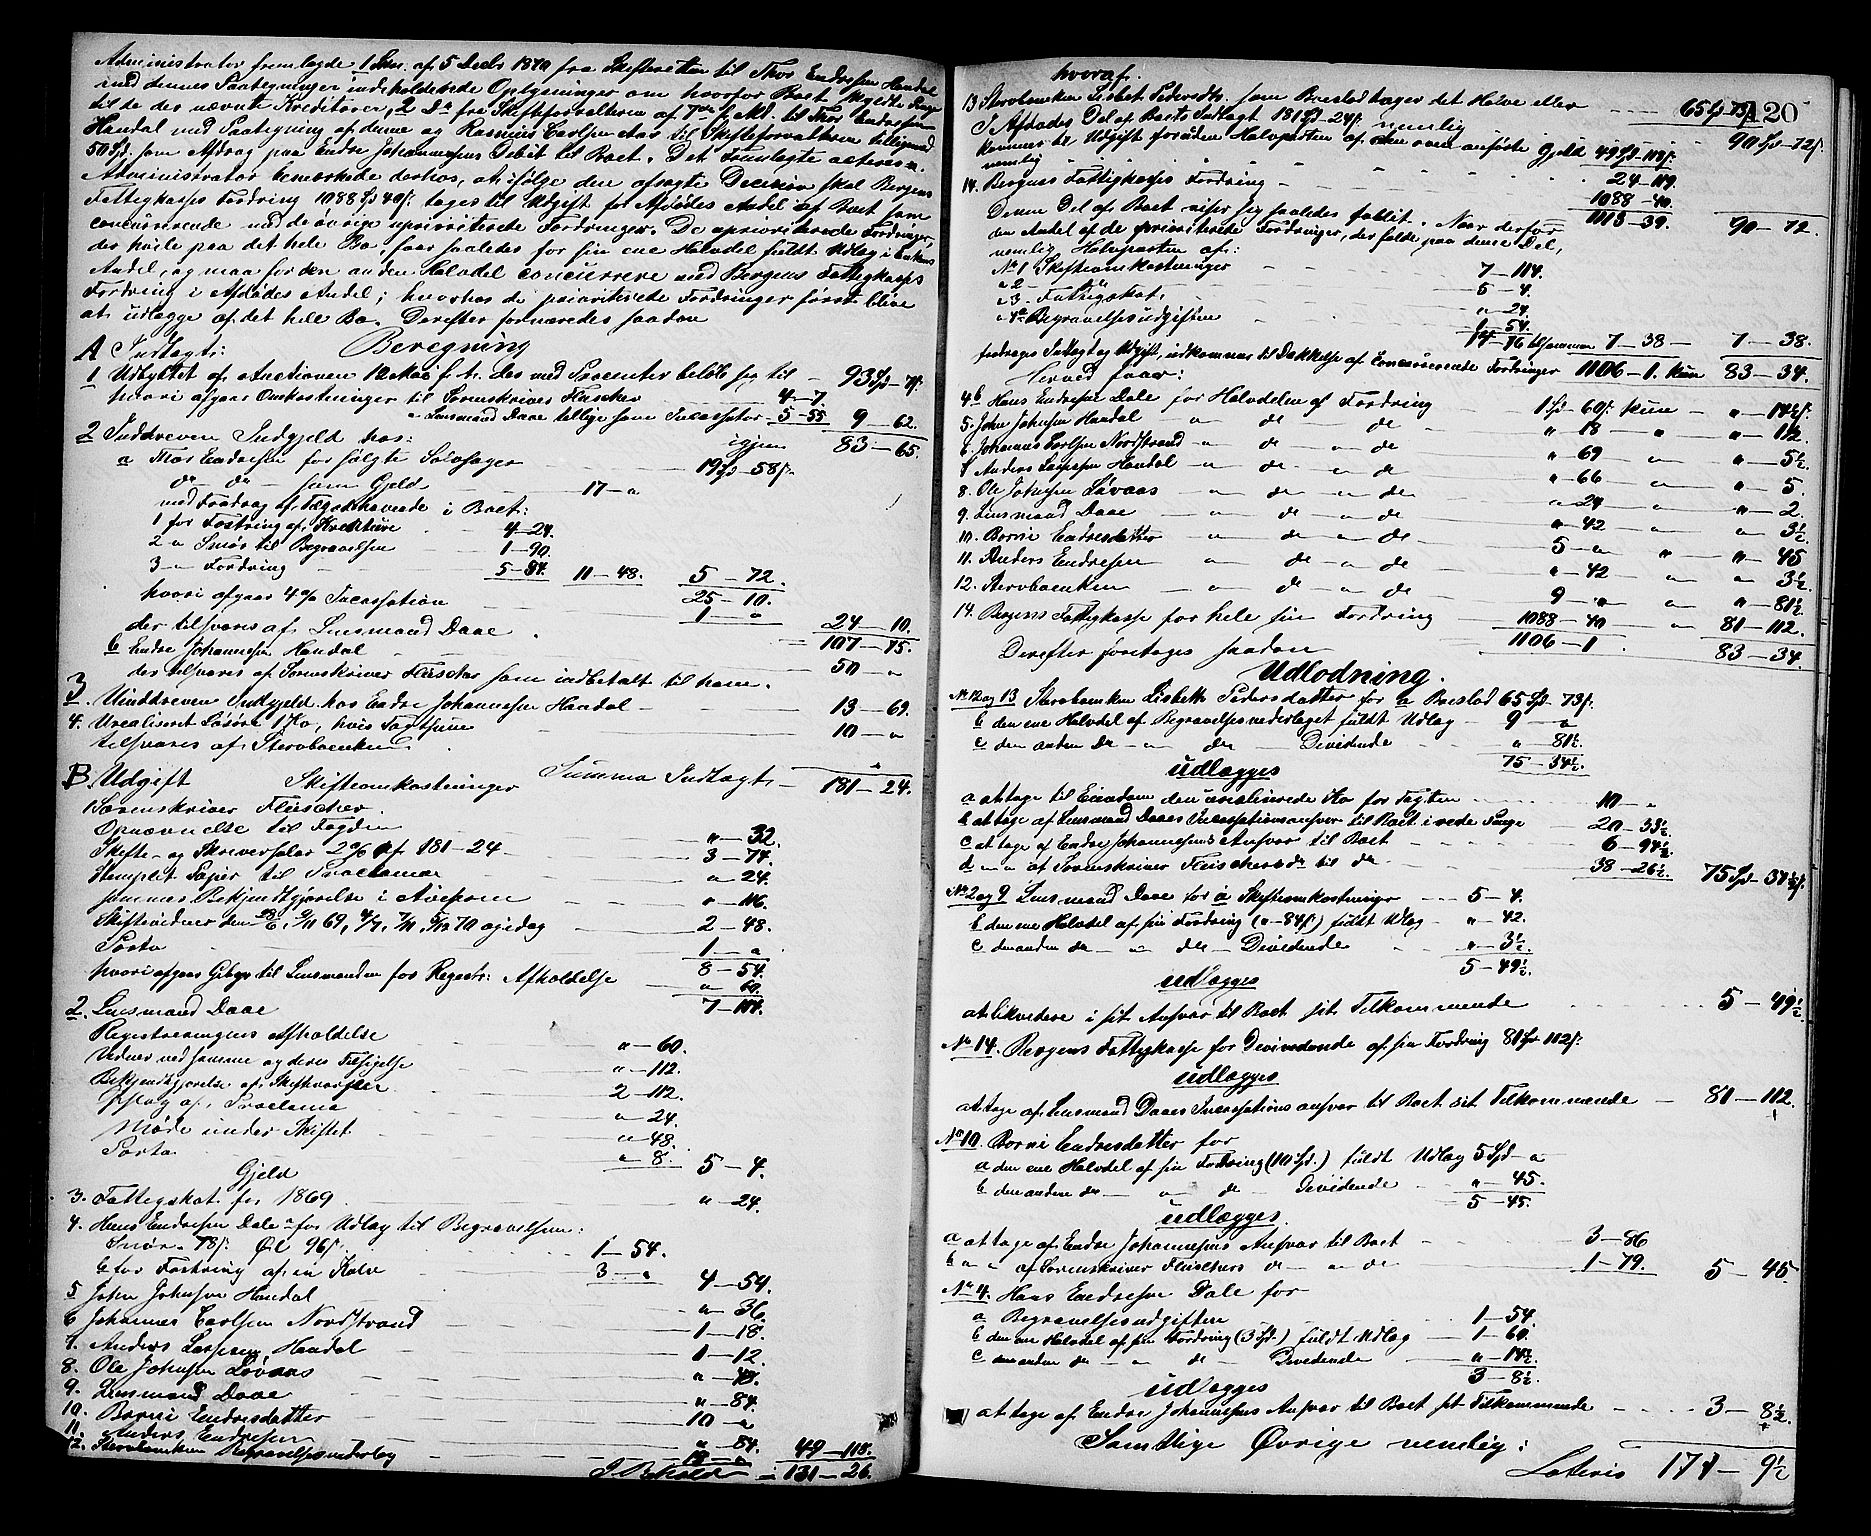 Administrator fremlagde 1 Skr. af 5 Decbr 1870 fra Skifteretten til Thor Endresen Handal
med dennes Paategninger indeholdende Oplysninger om hvorfor Boet skyldte Penge
til de der nævnte Kreditorer, 2 Do fra Skifteforvalteren af 7de f. Md. til Thor Endresen
Handal med Paategning af denne og Rasmus Carlsen
50 Spd. som Afdrag paa Endre Johannesens Debet til Boet. Det Fremlagte acteres.
Administrator bemærkede derhos, at ifølge den afsagte Decision skal Bergens
Fattigkasses Fordring 1088 Spd 40 s. tages til Udgift for Afdødes Andel af Boet som
concurrerende med de øvrige upriviterede Fordringer. De upriorterede Fordringer,
der hvile paa det hele Bo faar saaledes for sin ene Halvdel fuldt Udlæg i Enkens
Andel, og maa for den anden Halvdel concurrere med Bergens Fattigkasses
Fordring i Afdødes Andel; hvorhos de prioriterede Fordringer først blive
at udlægge af det hele Bo. Derefter formeredes saadan
Beregning
A Indtægt:
1 Udbyttet af Auctionen 12 Mai f. A. der med Procenter beløb sig til 93 Spd - 7 s.
hvori afgaar Omkostninger til Sorenskriver Fleischer 4 - 7.
" Lensmand Daae tillige som Incassator 5 - 55 9 - 62.
igjen 83 - 65.
2 Inddreven Indgjeld hos:
a Thor Endresen for solgte Løsøsager 19 Spd - 58 s.
do - do - som Gjeld 17 - "
med Fradrag af Tilgodehavende i Boet:
1 for Fostring af Kreature 4 - 24.
2 " Smør til Begravelsen 1 - 90.
3 " Fordring 5 - 54. 11 - 48. 5 - 72.
25 - 10.
hvori afgaar 4% Incassation 1 - "
der tilsvares af Lensmand Daae 24 - 10.
107 - 75.
b Endre Johannesen Handal
der tilsvares af Sorenskriver Fleischer som indbetalt til ham. 50 - "
3. Uinddreven Indgjeld hos Endre Johannesen Handal 13 - 69.
4. Urealiseret Løsøre 1 Ko, hvis Taxtsum 10 - "
tilsvares af Stervboenken
Summa Indtægt 181 - 24.
B. Udgift Skifteomkostninger
1 Sorenskriver Fleischer
Opnævnelse til Fogden " - 32.
Skifte- og Skriversalær 2% af 181 - 24 3 - 74.
Stemplet Papir til Proclama " - 24.
sammes Bekjendtgjørelse i Avisen " - 116.
2 - 48.
Porto 1 - "
8 - 54.
hvori afgaar Gebyr til Lensmanden for Registr: Afholdelse " - 60.
7 - 114.
2. Lensmand Daae
Registreringens Afholdelse " - 60.
Vidner ved samme og deres Tilsigelse " - 112.
Bekjendtgjørelse af Skiftevarsler 2 - 112.
Opslag af Proclama " - 24.
Møde under Skiftet " - 48.
Porto " - 8. 5 - 4.
Gjeld
3. Fattigskat for 1869 " - 24.
4. Hans Endresen Dale a for Udlæg til Begravelsen:
Smør - 78 s. Øl 96 s. 1 - 54.
b for Fostring af en Kalv 3 - " 4 - 54.
5 John Johnsen Handal " - 36.
6 Johannes Carlsen Nordstrand 1 - 18.
7. Anders Larssen Handal 1 - 12.
8. Ole Johnsen Løvaas " - 48.
9. Lensmand Daae " - 84.
10. Borni Endresdatter 10 - "
11. Anders Endresen " - 84.
12. Stervboenken Begravelsesunderlag 18 - " 49 - 118.
I Behold 131 - 26.
120
hvoraf.
13 Stervboenken Lisbet Pedersdtr. som Boeslod tager det Halve eller 65 Spd - 73 s.
I Afdødes Del af Boets Indtægt 181 Spd - 24 s. nemlig 90 Spd - 72 s.
kommer til Udgift foruden Halvparten af den oven anførte Gjeld 49 Spd - 118 s.
nemlig 24 - 119.
14. Bergens Fattigkasses Fordring 1088 - 40.
1113 - 39. 90 - 72.
Denne Del af Boet viser sig saaledes fallit. Naar derfor
den Andel af de prioriterede Fordringer, der falde paa denne Del,
nemlig Halvparten af:
No 1 Skifteomkostninger 7 - 114.
" 2 - " 5 - 4.
" 3 - Fattigskat. " - 24.
" 4a Begravelsesudgiften 1 - 54.
14 - 76 tilsammen 7 - 38 - 7 - 38.
fradrages Indtægt og Udgift, udkommer til Dækkelse af Concurrerende Fordringer 1106 - 1. kun 83 - 34.
Herved faar:
4b Hans Endresen Dale for Halvdelen af Fordring 1 Spd - 60 s. kun " - 14½ s.
5. John Johnsen Handal " do - do " - 18 " " - 1½.
6. Johannes Carlsen Nordstrand " do " do " - 69 " " - 5½.
7 Anders Larssen Handal " do " do " - 66 " " - 5.
8. Ole Johnsen Løvaas " do " do " - 24 " " - 2.
9. Lensmand Daae " do " do " - 42 " " - 3½.
10. Borni Endresdatter " do " do 5 - " " " - 45
11. Anders Endresen " do " do " - 42 " " 3½.
12. Stervboenken " do " do 9 - " " " - 81½.
14. Bergens Fattigkasse for hele sin Fordring 1088 - 40 " 81 - 112.
1106 - 1 83 - 34.
Derefter foretages saadan
Udlodning.
No 12 og 13 Stervboenken Lisbeth Pedersdatter for a Boeslod 65 Spd - 73 s.
b den ene Halvdel af Begravelsesunderlaget fuldt Udlæg 9 - "
c den anden do - " do - Dividende " 81½.
75 - 34½.
udlægges
a at tage til Eiendom den urealiserede Ko for Taxten 10 - "
b at tage af Lensmand Daaes Incassationsansvar til Boet i rede Penge 20 - 33½.
c at tage af Endre Johannesens Ansvar til Boet 6 - 94½.
d " " af Sorenskriver Fleischers do til do 38 - 26½. 75 Spd - 34½ s.
No 2 og 9 Lensmand Daae for a Skifteomkostninger 5 - 4.
b den ene Halvdel af sin Fordring (" - 84 s) fuldt Udlæg " - 42.
c den anden do - " do - Dividende " - 3½.
5 - 49½.
udlægges
at likvidere i sit Ansvar til Boet sit Tilkommende 5 - 49½.
No 14. Bergens Fattigkasse for Devidende af sin Fordring 81 Spd 112 s.
udlægges
at tage af Lensmand Daaes Incassationsansvar til Boet sit Tilkommende 81 - 112.
No 10. Borni Endresdatter for
a den ene Halvdel af sin Fordring (10 Spd.) fuldt Udlæg 5 Spd - "
b den anden do - " do - Devidende " - 45.
5 - 45.
udlægges
a at tage af Endre Johannesens Ansvar til Boet 3 - 86
b " " af Sorenskriver Fleischers do " do 1 - 79. 5 - 45
No 4. Hans Endresen Dale for
a Begravelsesudgiften 1 - 54.
b den ene Halvdel af sin Fordring (3 Spd.) fuldt Udlæg 1 - 60.
c den anden do " do - Dividende " - 14½.
3 - 8½.
udlægges
at tage af Endre Johannesens Ansvar til Boet sit Tilkommende 3 - 8½.
Samtlige Øvrige nemlig:
Lateris 171 - 9½